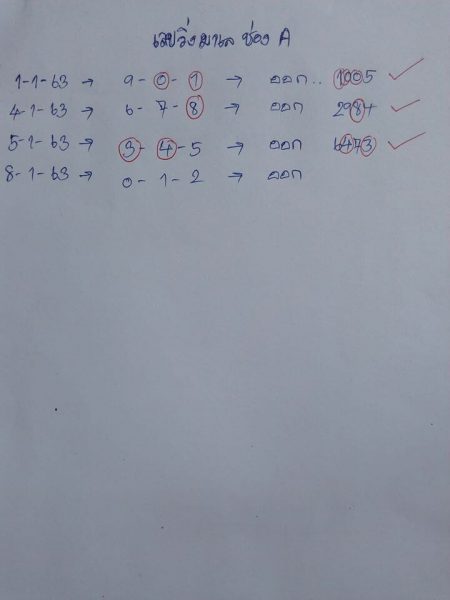 เลขวิ่งมาเล ช่อง A
1-1-63 → 9-0-1 → ออก.. 1005
4-1-63 → 6-7-8 → ออก 2987
5-1-63 → 3-4-5 → ออก 6473
8-1-63 → 0-1-2 → ออก